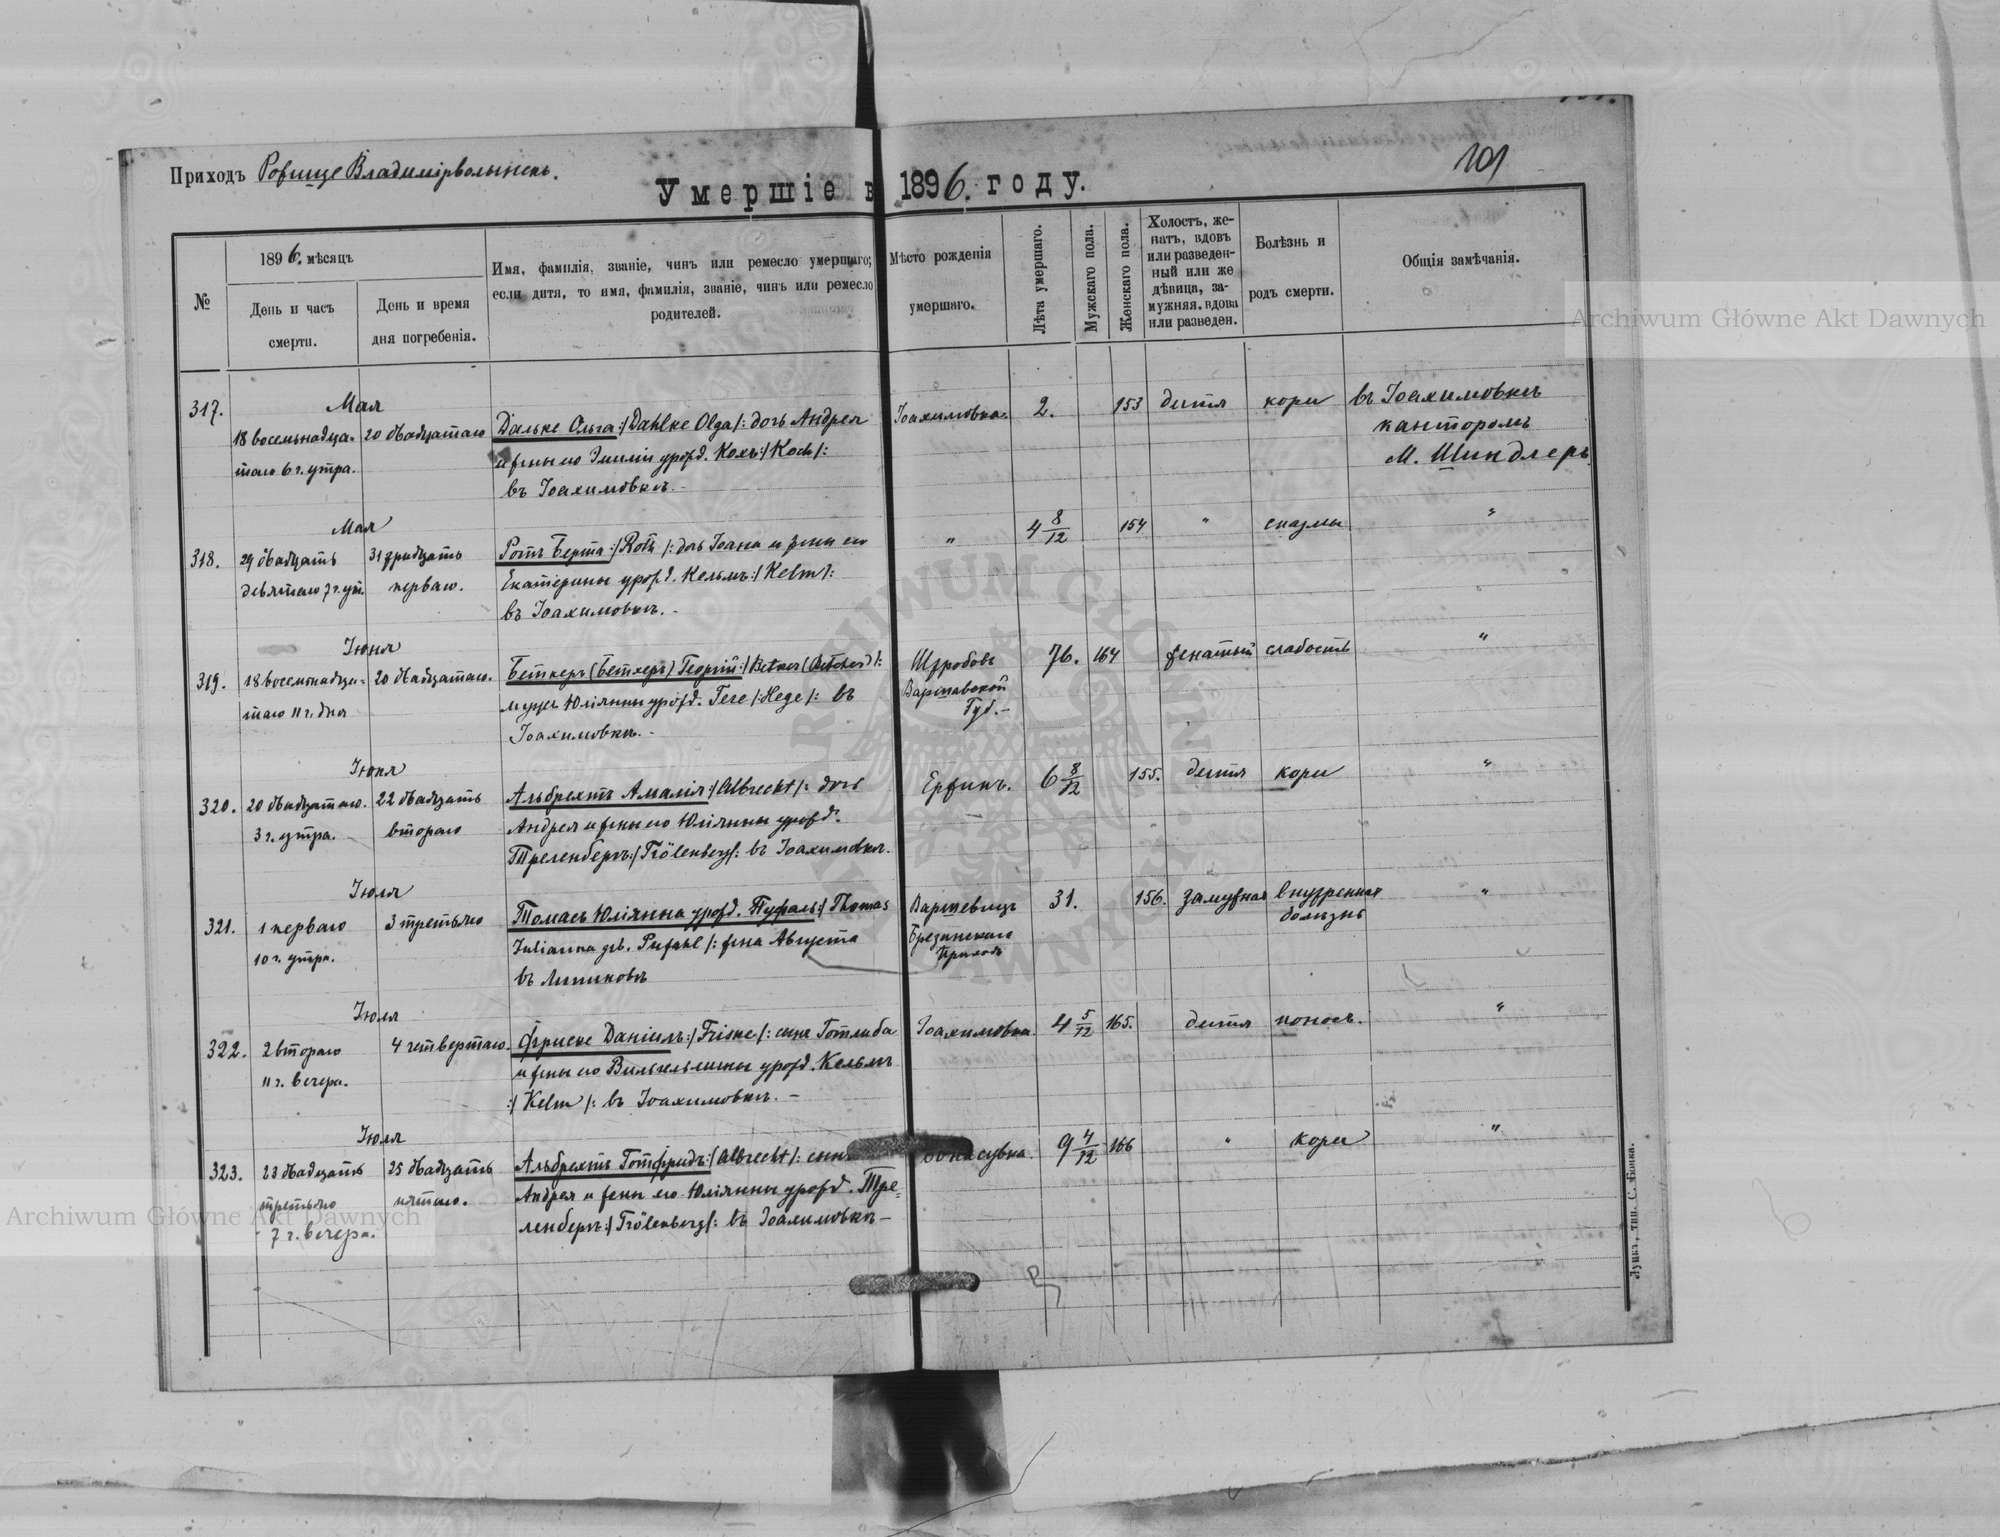 Приходъ Рожище Владимірволынскъ.
101
Умершіе въ 1896. году.
№
1896. мѣсяцъ
День и часъ
смерти.
День и время
дня погребенія.
Имя, фамилія, званіе, чинъ или ремесло умершаго;
если дитя, то имя, фамилія, званіе, чинъ или ремесло
родителей.
Мѣсто рожденія
умершаго.
Лѣта умершаго.
Мужскаго пола.
Женскаго пола.
Холостъ, же-
натъ, вдовъ
или разведен-
ный или же
дѣвица, за-
мужняя, вдова
или разведен.
Болѣзнь и
родъ смерти.
Общія замѣчанія.
317.
Мая
18 восемьнадца-
таго 6 г. утра.
20 двадцатаго
Дальке Ольга :/Dahlke Olga/: дочь Андрея
и жены его Эмиліи урожд. Кохъ :/Koch/:
въ Іоахимовкѣ. -
Іоахимовка.
2.
153
дитя
кори
въ Іоахимовкѣ
канторомъ
М. Шиндлеръ
318.
Мая
29 двадцать
девятаго 7 г. ут.
31 тридцать
перваго.
Ротъ Берта :/Roth/: дочь Іоана и жены его
Екатерины урожд. Кельмъ :/Kelm/:
въ Іоахимовкѣ. -
"
4 8/12
154
"
спазмы
"
319.
Іюня
18 восемьнадца-
таго 11 г. дня
20 двадцатаго.
Беткеръ (Бетхеръ) Георгій :/Betker (Betcher)/:
мужъ Юліянны урожд. Геге /:Hege/: въ
Іоахимовкѣ. -
Варшавской
Губ. -
76.
164
женатый
слабость
"
320.
Іюня
20 двадцатаго.
3 г. утра.
22 двадцать
втораго
Альбрехтъ Амалія :/Albrecht/: дочь
Андрея и жены его Юліянны урожд.
Треленбергъ :/Trölenberg/: въ Іоахимовкѣ.
6 8/12
155.
дитя
кори
"
321.
Іюля
1 перваго
10 г. утра.
3 третьяго
Томасъ Юліянна урожд. Пуфаль :/ Thomas
Julianna geb. Pufahl /: жена Августа
въ Липиновѣ
Приходъ
31.
156.
замужняя
внутренная
болѣзнь
"
322.
Іюля
2 втораго
11 г. вечера.
4 четвертаго.
Фриске Даніилъ :/Friske/: сынъ Готлиба
и жены его Вильгельмины урожд. Кельмъ
:/ Kelm /: въ Іоахимовкѣ. -
Іоахимовка
4 5/12
165.
дитя
поносъ.
"
323.
Іюля
23 двадцать
третьяго
7 г. вечера.
25 двадцать
пятаго.
Альбрехтъ Готфридъ :/Albrecht/: сынъ
Андрея и жены его Юліянны урожд. Тре=
ленбергъ :/Trölenberg/: въ Іоахимовкѣ -
9 4/12
166
"
кори
"
Луцкъ, тип. С. Бонка.
Archiwum Główne Akt Dawnych
Archiwum Główne Akt Dawnych
ARCHIWUM GŁÓWNE AKT DAWNYCH